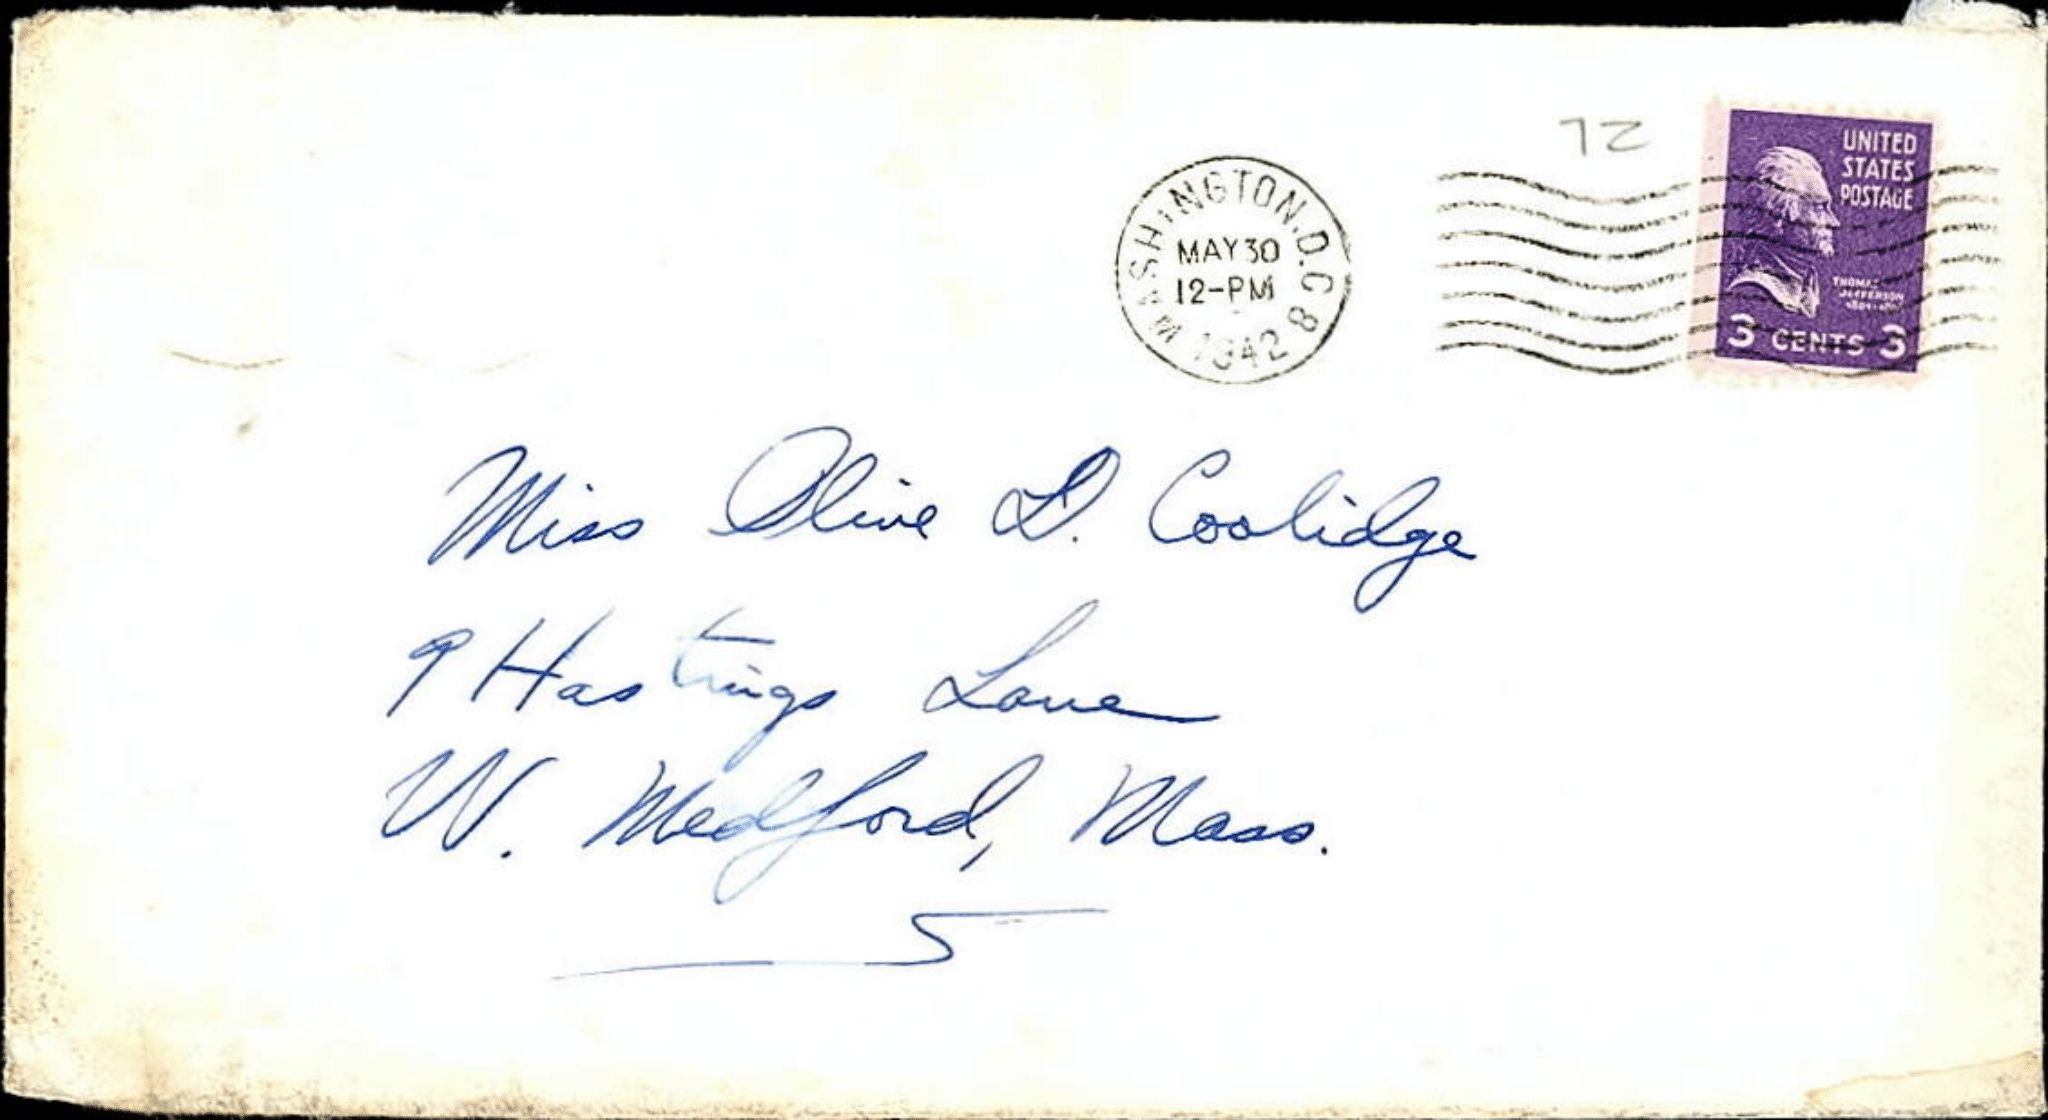 72
UNITED
STATES
POSTAGE
THOMAS
JEFFERSON
3 CENTS 3
WASHINGTON, D.C. 8
MAY 30
12-PM
1942
Miss Olive D. Coolidge
9 Hastings Lane
W. Medford, Mass.
5